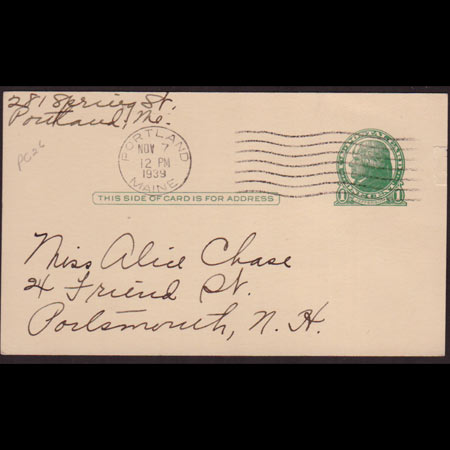 281 Spring St.
Portland, Me.
PC26
PORTLAND
NOV 7
12 PM
1939
MAINE
1 1
THIS SIDE OF CARD IS FOR ADDRESS
Miss Alice Chase
24 Friend St.
Portsmouth, N. H.